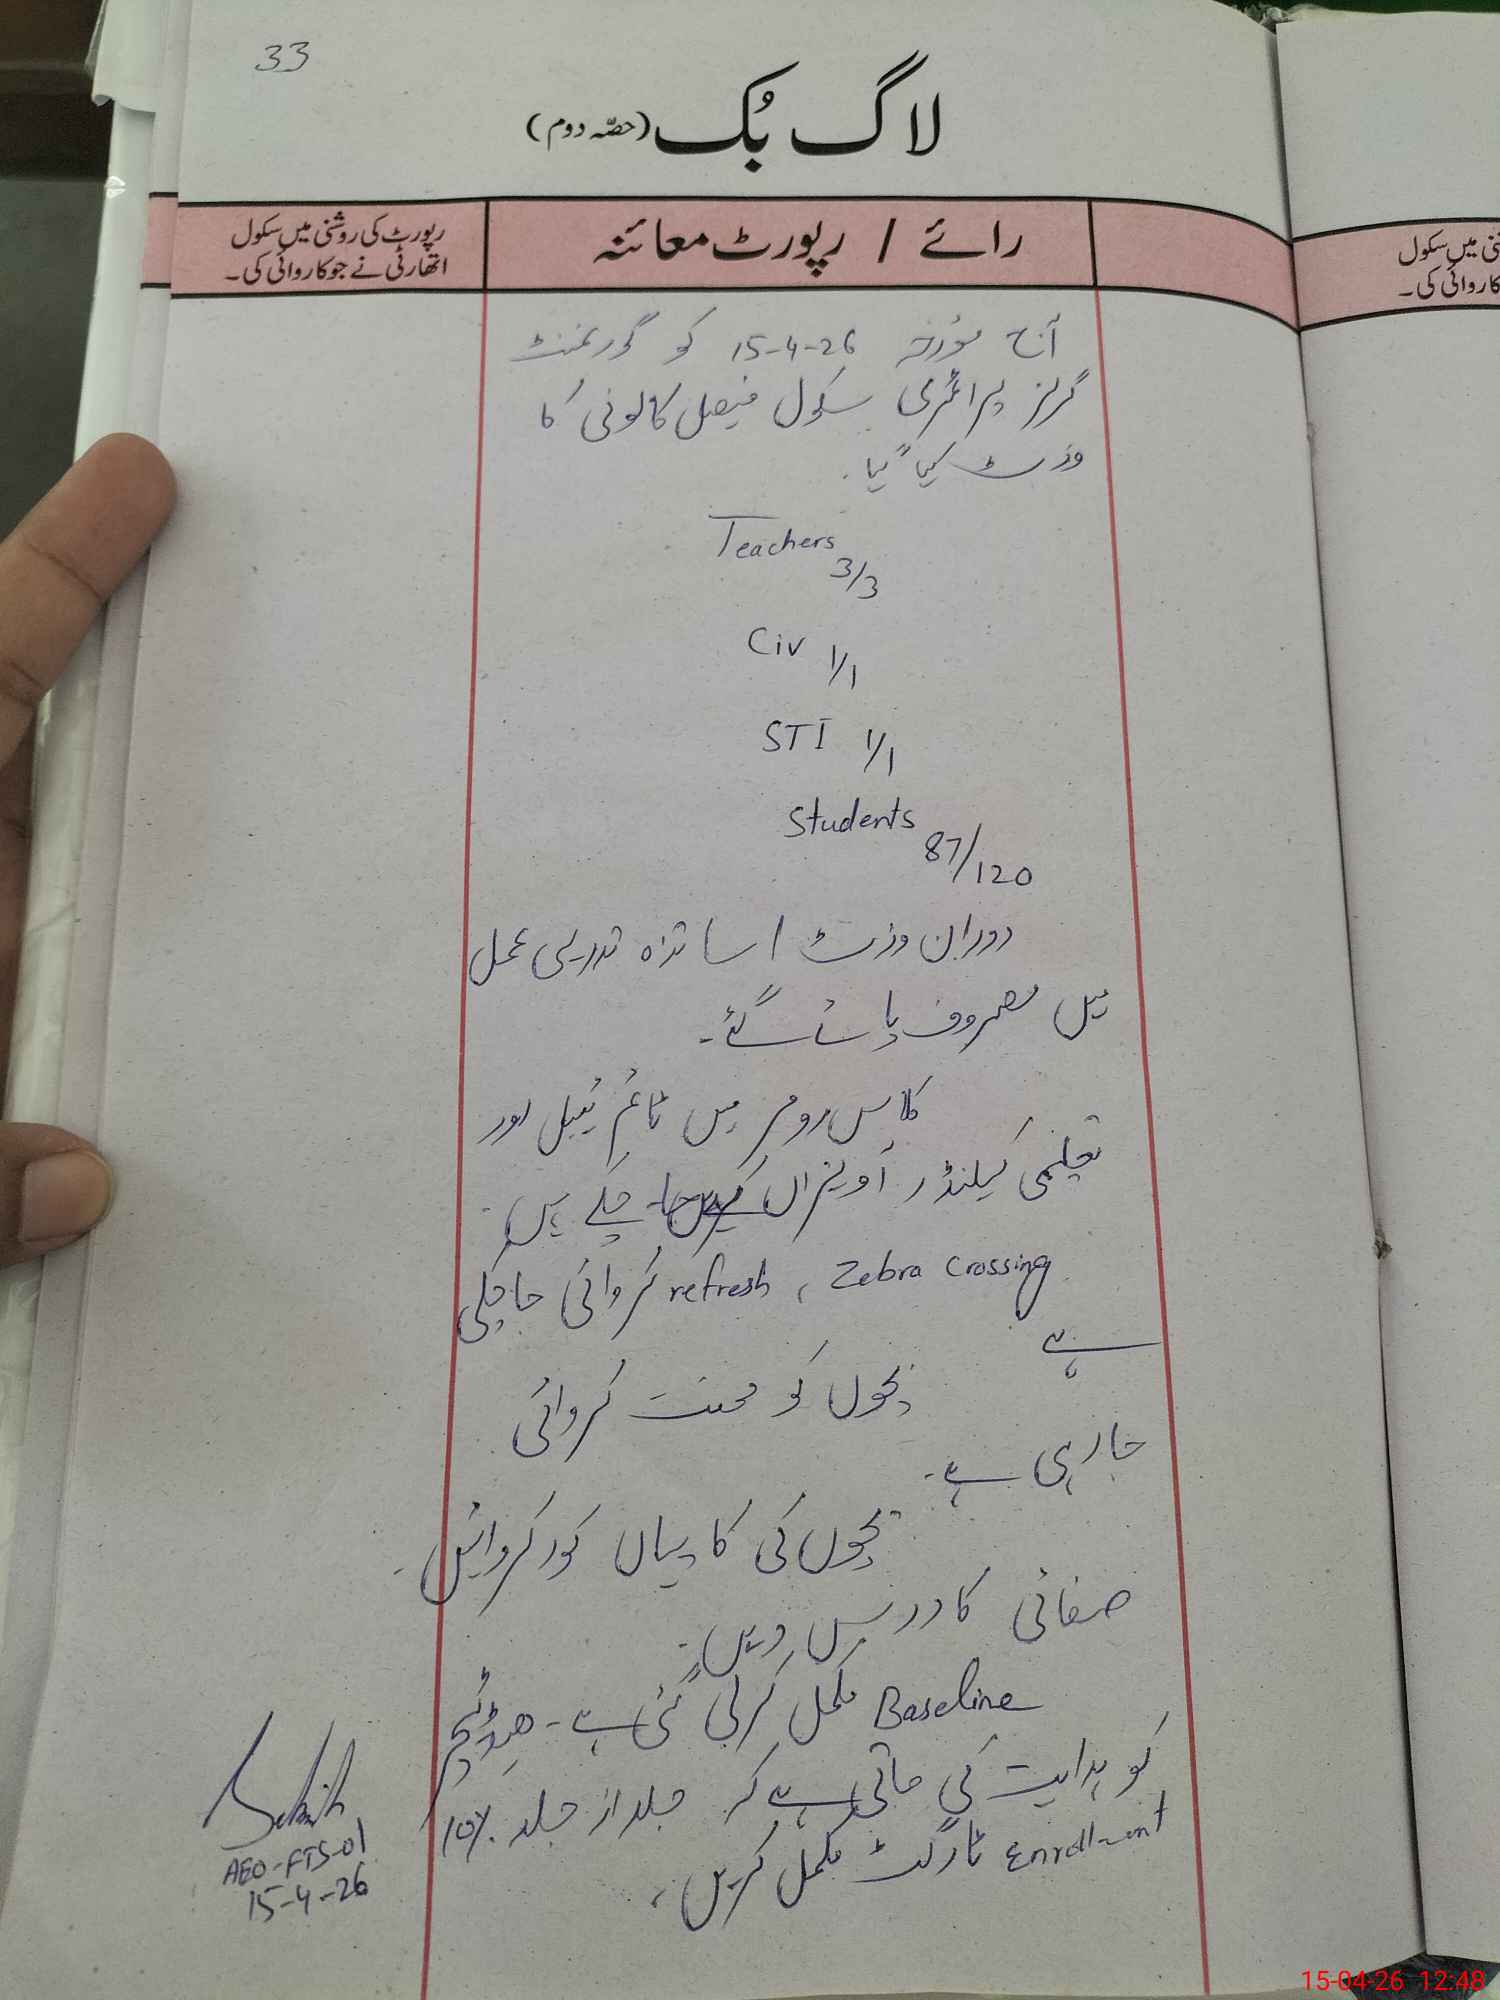 33
لاگ بُک (حصّہ دوم)
رائے / رپورٹ معائنہ
رپورٹ کی روشنی میں سکول
اتھارٹی نے جو کاروائی کی۔
نی میں سکول
کاروائی کی۔
آج مؤرخہ 15-4-26 کو گورنمنٹ
گرلز پرائمری سکول فیصل کالونی کا
وزٹ کیا گیا۔
Teachers 3/3
Civ 1/1
STI 1/1
Students 87/120
دوران وزٹ اساتذہ تدریسی عمل
میں مصروف پائے گئے۔
کلاس روم میں ٹائم ٹیبل اور
تعلیمی کیلنڈر آویزاں کیے جا چکے ہیں۔
Zebra Crossing، refresh کروائی جا چکی
ہے
بچوں کو محنت کروائی
جا رہی ہے۔
بچوں کی کاپیاں کور کروائیں۔
صفائی کا درس دیں۔
Baseline مکمل کر لی گئی ہے۔ ھیڈ ٹیچر
کو ہدایت کی جاتی ہے کہ جلد از جلد 10%
Enrollment ٹارگٹ مکمل کریں۔
AEO-FTS-01
15-4-26
15-04-26 12:48